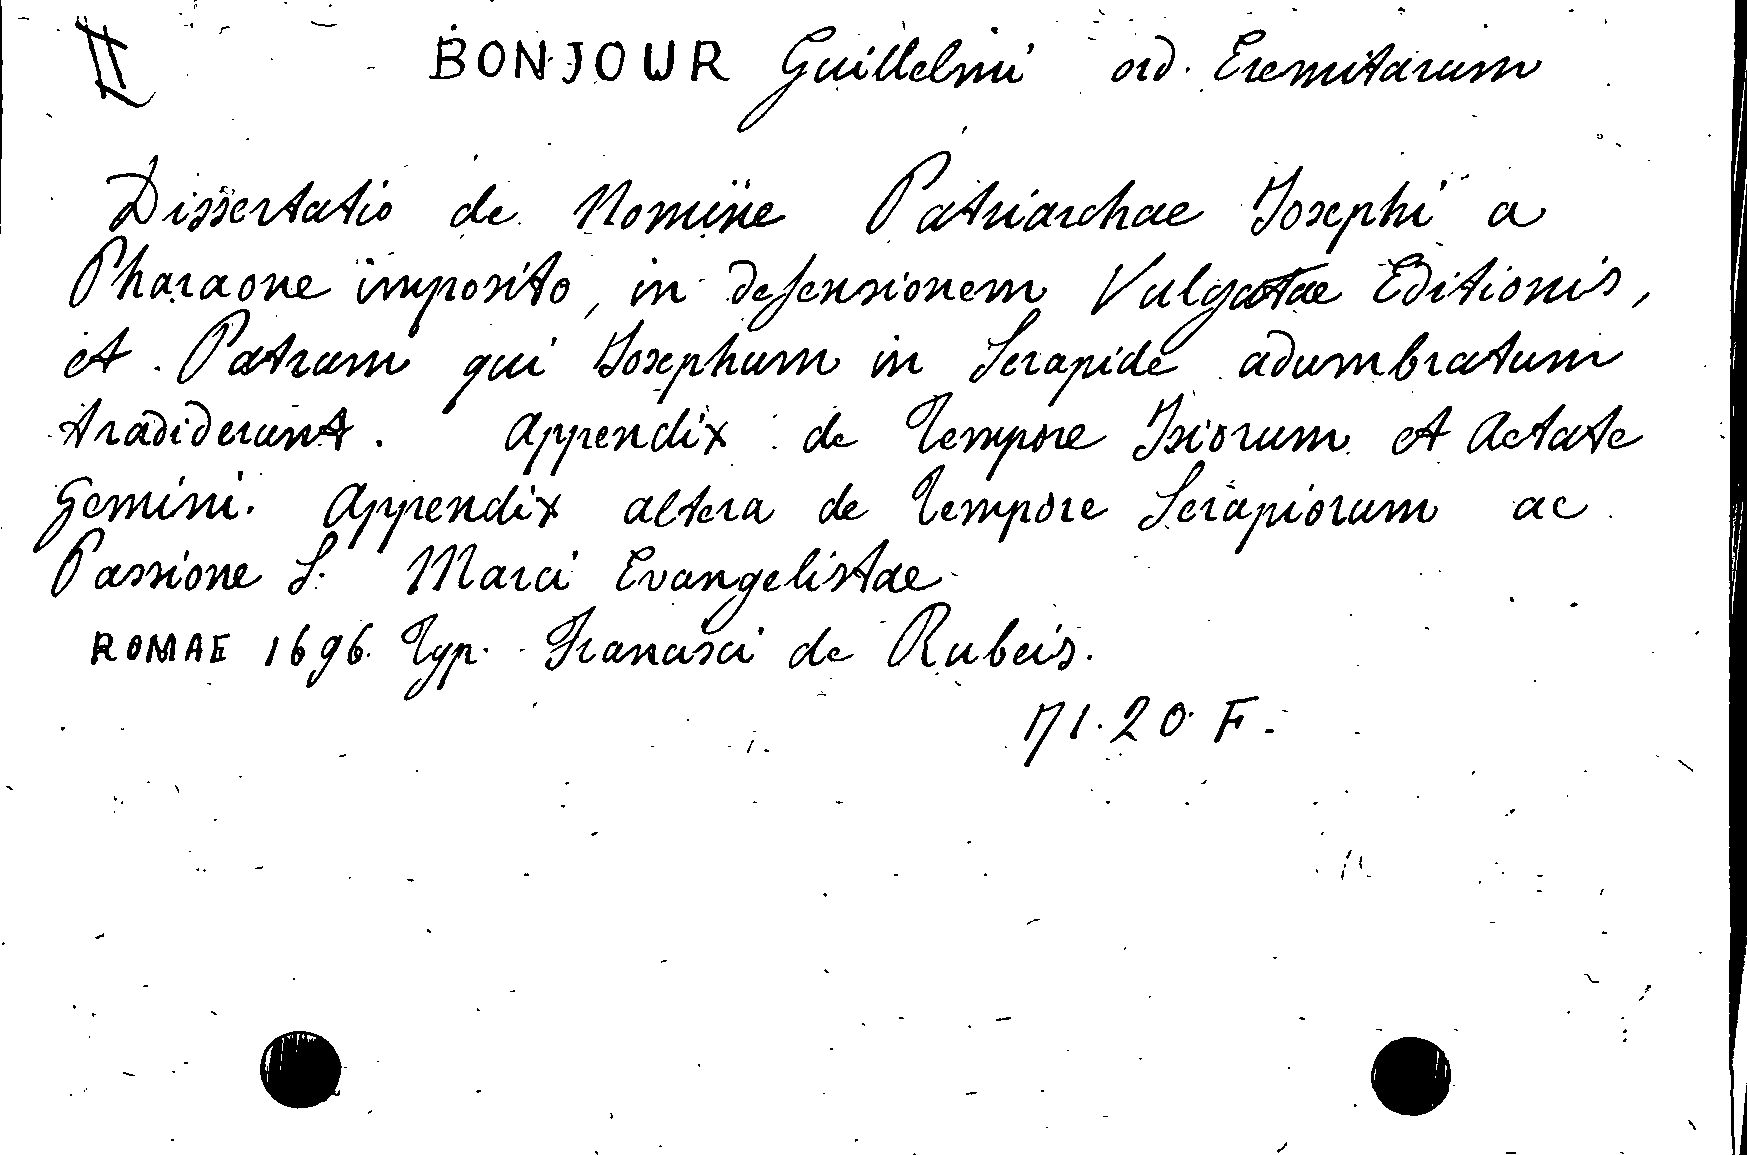 BONJOUR Guillelmi ord. Eremitarum
Dissertatio de Nomine Patriarchae Josephi a
Pharaone imposito, in defensionem Vulgatae Editionis,
et Patrum qui Josephum in Serapide adumbratum
tradiderunt. Appendix de Tempore Isiorum et Aetate
Gemini. Appendix altera de Tempore Serapiorum ac
Passione S. Marci Evangelistae
ROMAE 1696. Typ. Francisci de Rubeis.
71.20 F.